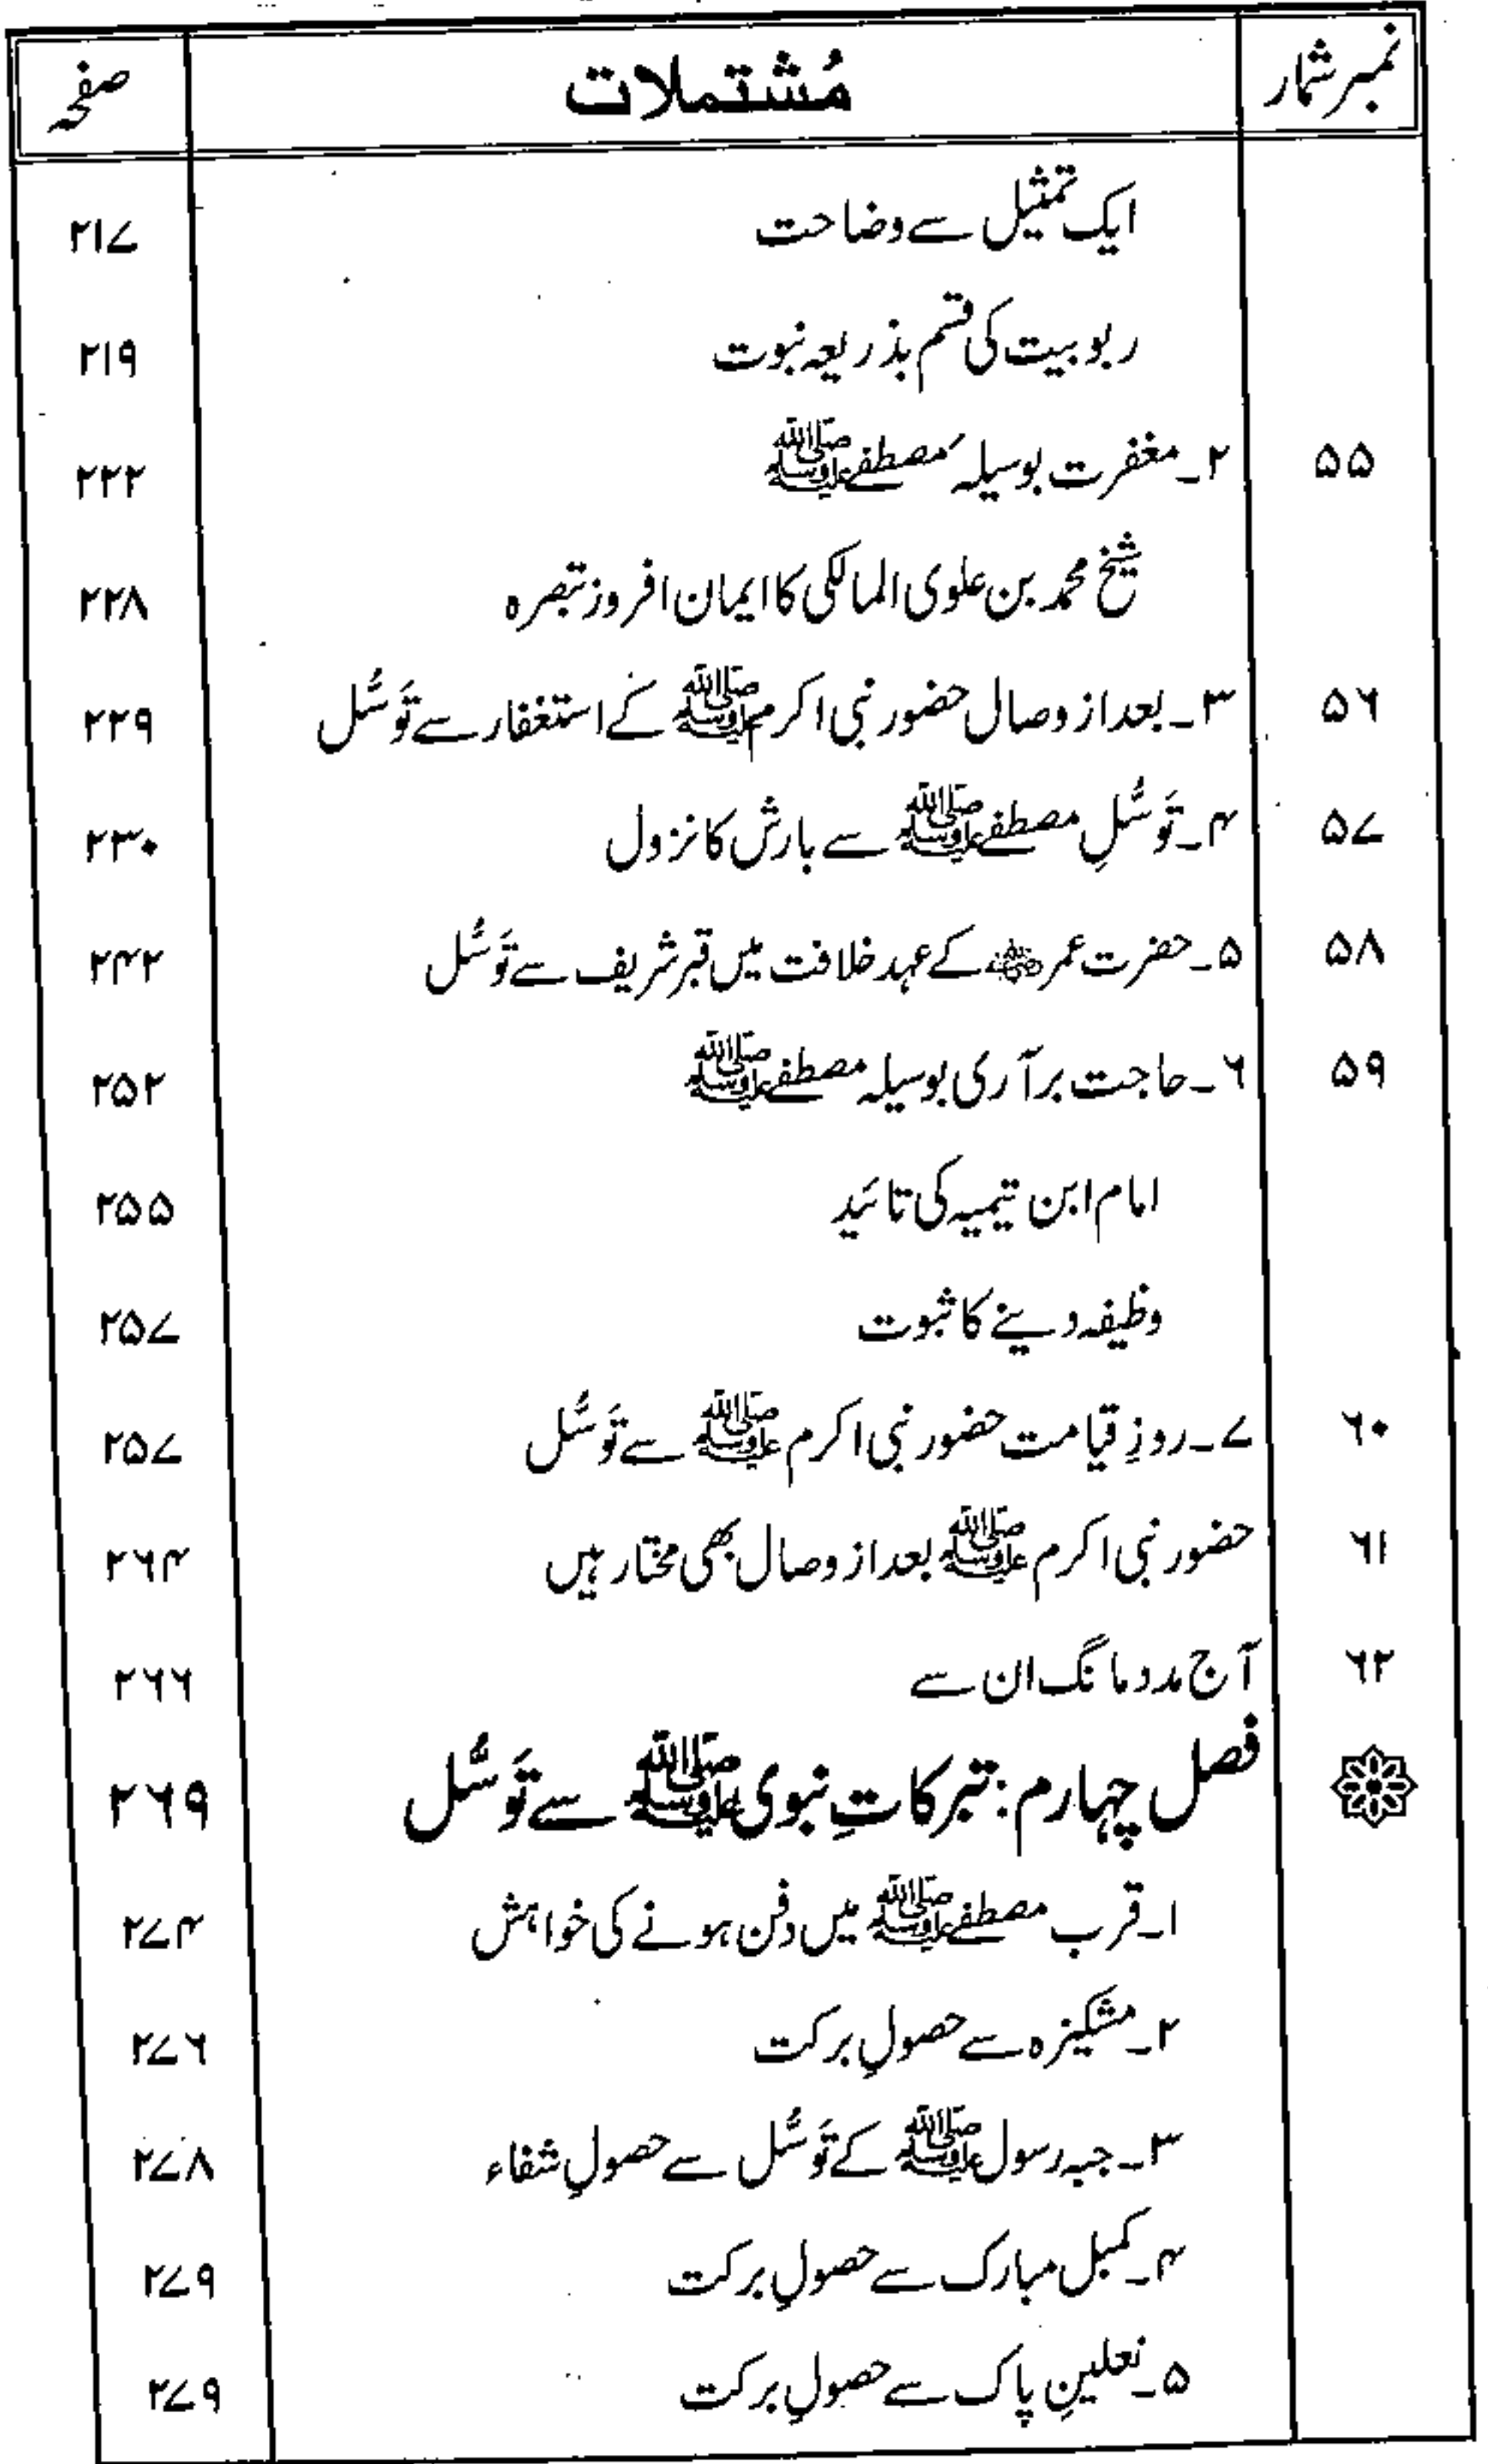 نمبر شمار مُشتملات صفحہ
ایک تمثیل سے وضاحت ۲۱۷
ربوبیت کی قسم بذریعہ نبوت ۲۱۹
۵۵ ۲۔ مغفرت بوسیلہ مصطفےٰ ﷺ ۲۲۲
شیخ محمد بن علوی المالکی کا ایمان افروز تبصرہ ۲۲۸
۵۶ ۳۔ بعد از وصال حضور نبی اکرم ﷺ کے استغفار سے تَوسُّل ۲۲۹
۵۷ ۴۔ تَوسُّلِ مصطفےٰ ﷺ سے بارش کا نزول ۲۳۰
۵۸ ۵۔ حضرت عمر ؓ کے عہد خلافت میں قبر شریف سے تَوسُّل ۲۴۲
۵۹ ۶۔ حاجت برآری بوسیلہ مصطفےٰ ﷺ ۲۵۲
امام ابن تیمیہ کی تائید ۲۵۵
وظیفہ دینے کا ثبوت ۲۵۷
۶۰ ۷۔ روزِ قیامت حضور نبی اکرم ﷺ سے تَوسُّل ۲۵۷
۶۱ حضور نبی اکرم ﷺ بعد از وصال بھی مختار ہیں ۲۶۴
۶۲ آج مدد مانگ ان سے ۲۶۶
فصل چہارم: تبرکاتِ نبوی ﷺ سے تَوسُّل ۲۶۹
۱۔ قرب مصطفےٰ ﷺ میں دفن ہونے کی خواہش ۲۷۴
۲۔ مشکیزہ سے حصولِ برکت ۲۷۶
۳۔ جبہ رسول ﷺ کے تَوسُّل سے حصولِ شفاء ۲۷۸
۴۔ کمبل مبارک سے حصولِ برکت ۲۷۹
۵۔ نعلینِ پاک سے حصولِ برکت ۲۷۹